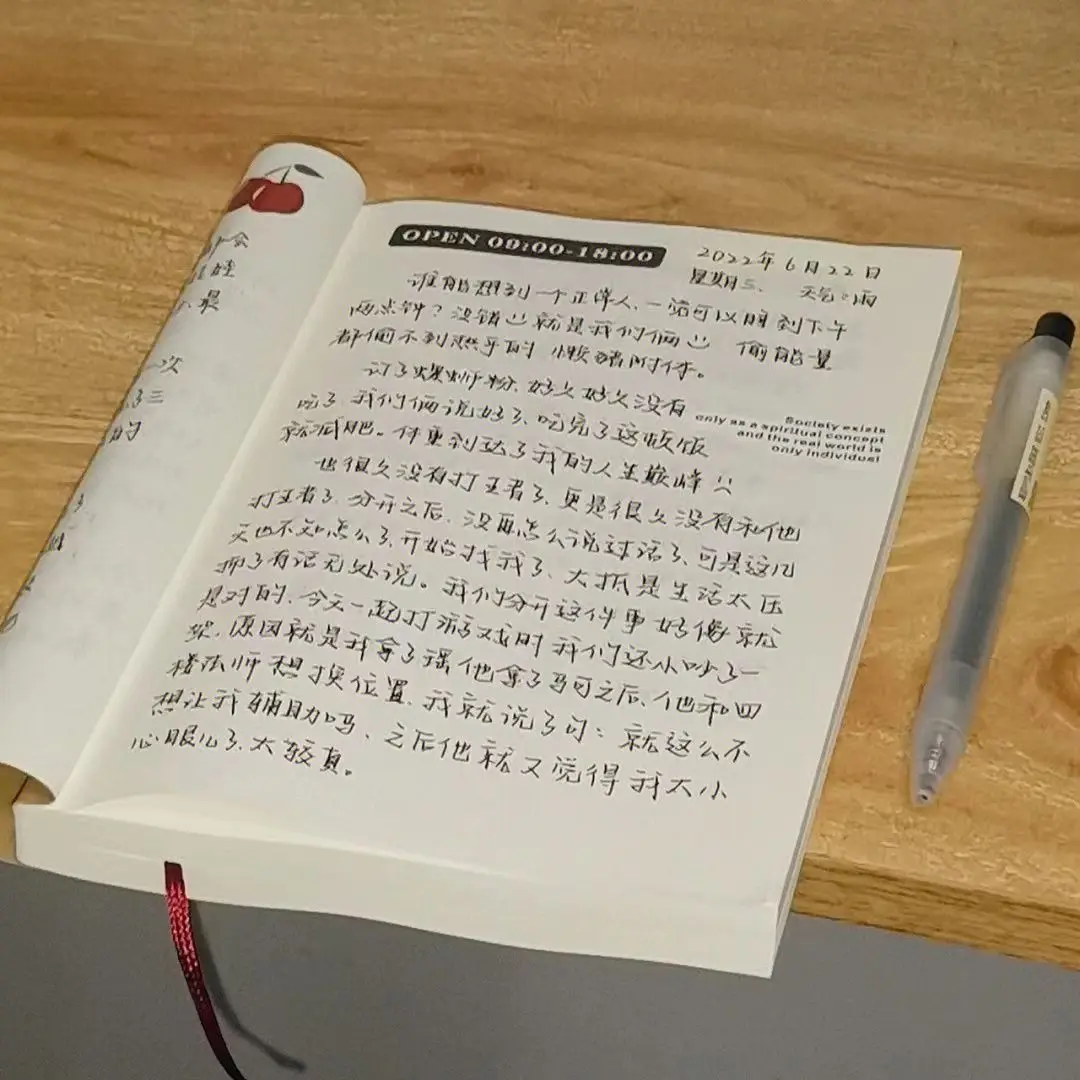 OPEN 09:00-18:00
2022年6月22日
星期三、 天气:雨
谁能想到一个正常人、一觉可以睡到下午
两点钟?没错就是我们俩 偷能量
都偷不到热乎的 懒猪附体。
订了爆炒粉、好久好久没有
吃了、我们俩说好了、吃完了这顿饭
就减肥。体重到达了我的人生巅峰
Society exists
only as a spiritual concept
and the real world is
only individual
也很久没有打王者了、更是很久没有和他
打王者了、分开之后、没再怎么说过话了、可是这几
天也不知怎么了、开始找我了、大抵是生活太压
抑了有话无处说。我们分开这件事好像就
是对的、今天一起打游戏时我们还小吵了一
架、原因就是我拿了瑶他拿了马可之后、他和四
楼法师想换位置、我就说了句:就这么不
想让我辅助吗、之后他就又说得我太小
心眼儿了、太较真。
会
娃
最
一次
了三
的